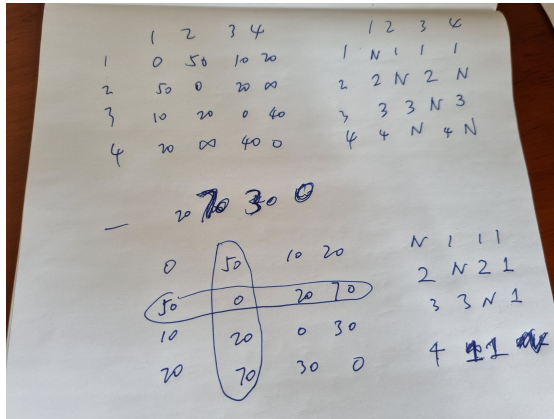 1 2 3 4
1 0 50 10 20
2 50 0 20 ∞
3 10 20 0 40
4 20 ∞ 40 0
1 2 3 4
1 N 1 1 1
2 2 N 2 N
3 3 3 N 3
4 4 N 4 N
— 20 70 30 0
0 50 10 20
50 0 20 70
10 20 0 30
20 70 30 0
N 1 1 1
2 N 2 1
3 3 N 1
4 1 1 N